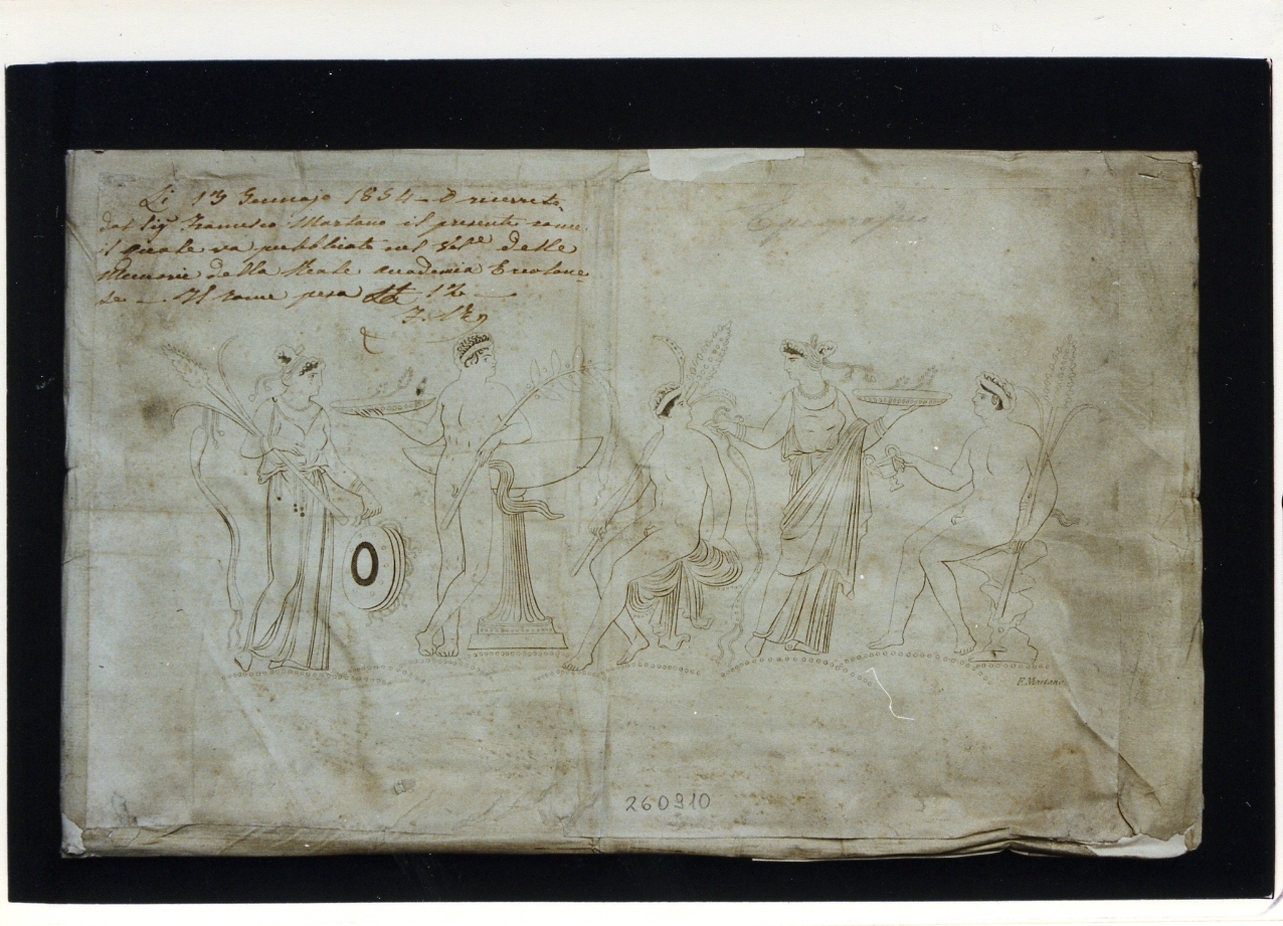 Li 13 Gennajo 1854 – O ricevuto
dal Sig. Francesco Martano il presente rame
il quale va pubblicato nel Vol.e delle
Memorie della Reale accademia Ercolane-
se – Il rame pesa 12 –
Epigrafia
F. Martano
260910